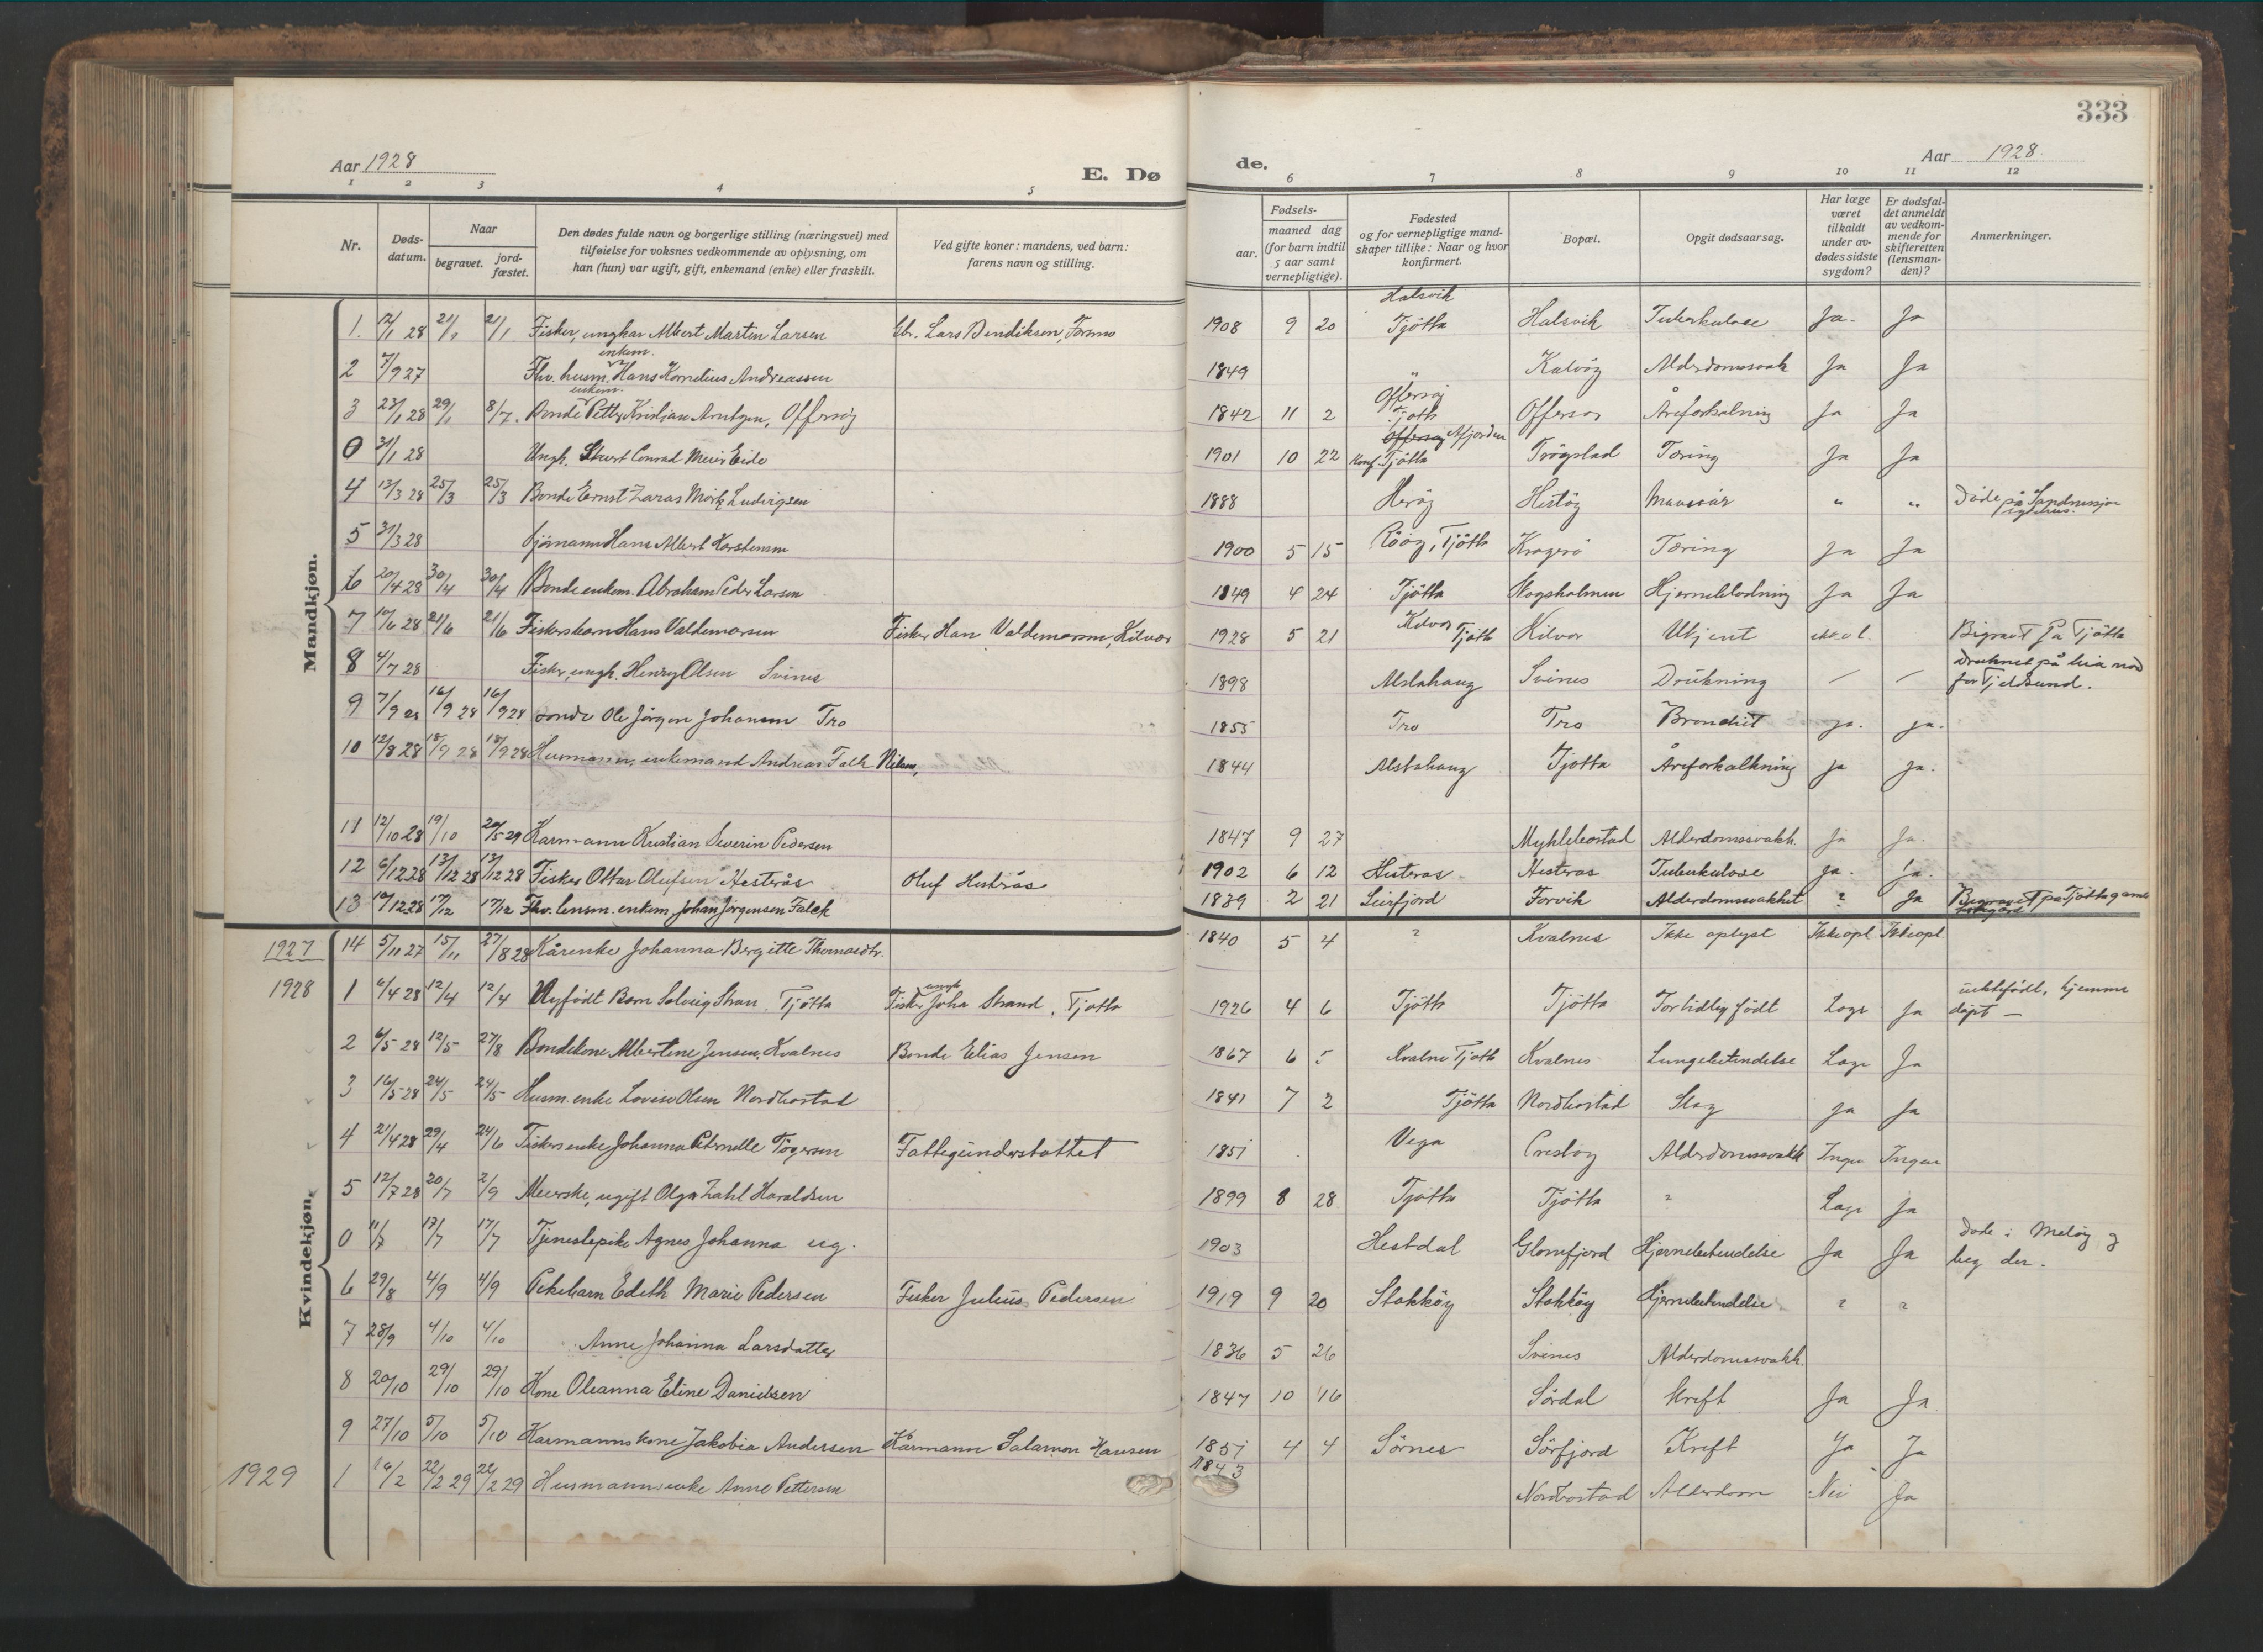 333
Aar 1928
E. Dø
de.
Aar 1928.
1 2 3 4 5 6 7 8 9 10 11 12
Nr.
Døds-
datum.
Naar
begravet.
jord-
fæstet.
Den dødes fulde navn og borgerlige stilling (næringsvei) med
tilføielse for voksnes vedkommende av oplysning, om
han (hun) var ugift, gift, enkemand (enke) eller fraskilt.
Ved gifte koner: mandens, ved barn:
farens navn og stilling.
Fødsels-
aar.
maaned dag
(for barn indtil
5 aar samt
vernepligtige).
Fødested
og for vernepligtige mand-
skaper tillike: Naar og hvor
konfirmert.
Bopæl.
Opgit dødsaarsag.
Har læge
været
tilkaldt
under av-
dødes sidste
sygdom?
Er dødsfal-
det anmeldt
av vedkom-
mende for
skifteretten
(lensman-
den)?
Anmerkninger.
Mandkjøn.
Halsvik
1. 12/1 28 21/1 21/1 Fisker, ungkar Albert Martin Larsen Lars Bendiksen, Forsmo 1908 9 20 Tjötta Halsvik Tuberkulose Ja. Ja
enkem.
2 7/9 27 Fhv. husm. Hans Kornelius Andreassen 1849 " Kalvöy Alderdomssvak Ja Ja
enkem. Offersöy
3 23/1 28 29/1 8/7. Bonde Petter Kristian Arntzen, Offersöy 1842 11 2 Tjött Offersöy Åreforkalkning Ja Ja
Offersöy Afjorden
0 31/1 28 Ungk. Conrad Meier Eide 1901 10 22 konf. Tjötta Trögstad Tæring Ja Ja
4 13/3 28 25/3 25/3 Bonde Ernst Zaras Mörk Ludvigsen 1888 Heröy Hestöy Mavesår " " Döde på Sandnessjøe
sykehus.
5 31/3 28 Sjömann Hans Albert Karstensen 1900 5 15 Rööy, Tjött Kragerø Tæring Ja Ja
6 20/4 28 30/4 30/4 Bonde enkem. Abraham Peder Larsen 1849 4 24 Tjötta Skogsholmen Hjerneblødning Ja Ja
7 10/6 28 21/6 21/6 Fiskersbarn Hans Valdemarsen Fisker Han Valdemarsen, Kilvær 1928 5 21 Kilvær Tjött Kilvær Ukjent Begravet på Tjötta
8 4/7 28 Fisker, ungk. Henry Olsen Svines 1898 Alstahaug Svines Drukning — — Druknet på leia nord
for Tjeldsund.
9 7/9 28 16/9 28 16/9 28 Bonde Ole Jörgen Johansen Tro 1855 Tro Tro Bronchit ja. ja.
10 12/8 28 18/9 28 18/9 28 Husmann, enkemand Andreas Falk Nilsen, 1844 Alstahaug Tjøtta Åreforkalkning ja ja.
11 12/10 28 19/10 20/5 29 Kårmann Kristian Severin Pedersen 1847 9 27 Myklebostad Alderdomssvakh. Ja Ja.
12 6/12 28 13/12 28 13/12 28 Fisker Ottar Olufsen Hesterås Oluf Hesterås 1902 6 12 Hesterås Hesterås Tuberkulose ja. Ja.
13 10/12 28 17/12 17/12 Fhv. lensm. enkem. Johan Jörgensen Falck 1839 2 21 Leirfjord Forvik Alderdomssvakhet ? Ja Begravet på Tjøtta gamle
Kvindekjøn.
1927 14 5/11 27 15/11 27/8 28 Kårenke Johanna Bergitte Thomasdtr. 1840 5 4 ? Kvalnes Ikke oplyst Ikke opl Ikke opl
1928 1 6/4 28 12/4 12/4 Nyfödt Barn Solveig Stran Tjötta Fisker ungk. Joha Strand, Tjøtta 1926 4 6 Tjött Tjötta For tidlig födt Læge Ja uektefödt, hjemme
döpt —
2 6/5 28 12/5 27/8 Bondekone Albertine Jensen, Kvalnes Bonde Elias Jensen 1867 6 5 Kvalne Tjött Kvalnes Lungebetendelse Læge Ja
3 16/5 28 24/5 24/5 Husm. enke Lovise Olsen Nordbostad 1841 7 2 Tjötta Nordbostad Slag ja Ja
4 21/4 28 29/4 24/6 Fiskers enke Johanna Peternelle Tögersen Fattigunderstøttet 1851 Vega Alderdomssvakh Ingen Ingen
5 12/7 28 20/7 2/9 Meierske, ugift Olga Zahl Haraldsen 1899 8 28 Tjøtta Tjötta ? Læge Ja
0 11/7 17/7 17/7 Tjenestepike Agnes Johanna ug. 1903 Hestdal Glomfjord Hjernebetendelse Ja Ja Døde i Meløy og
beg der.
6 29/8 4/9 4/9 Pikebarn Edith Marie Pedersen Fisker Julius Pedersen 1919 9 20 Stokköy Stokköy Hjernebetendelse ? ?
7 28/9 4/10 4/10 Anne Johanna Larsdatter 1836 5 26 Svines Alderdomssvakh.
8 20/10 29/10 29/10 Kone Oleanna Eline Danielsen 1847 10 16 Sördal Kreft Ja Ja
9 27/10 5/10 5/10 Kårmanns kone Jakobia Andersen Kårmann Salamon Hansen 1851 4 4 Sörnes Sörfjord Kreft Ja Ja
1843
1929 1 16/2 22/2 29 22/2 29 Husmannsenke Anne Pettersen Nordbostad Alderdom Nei Ja